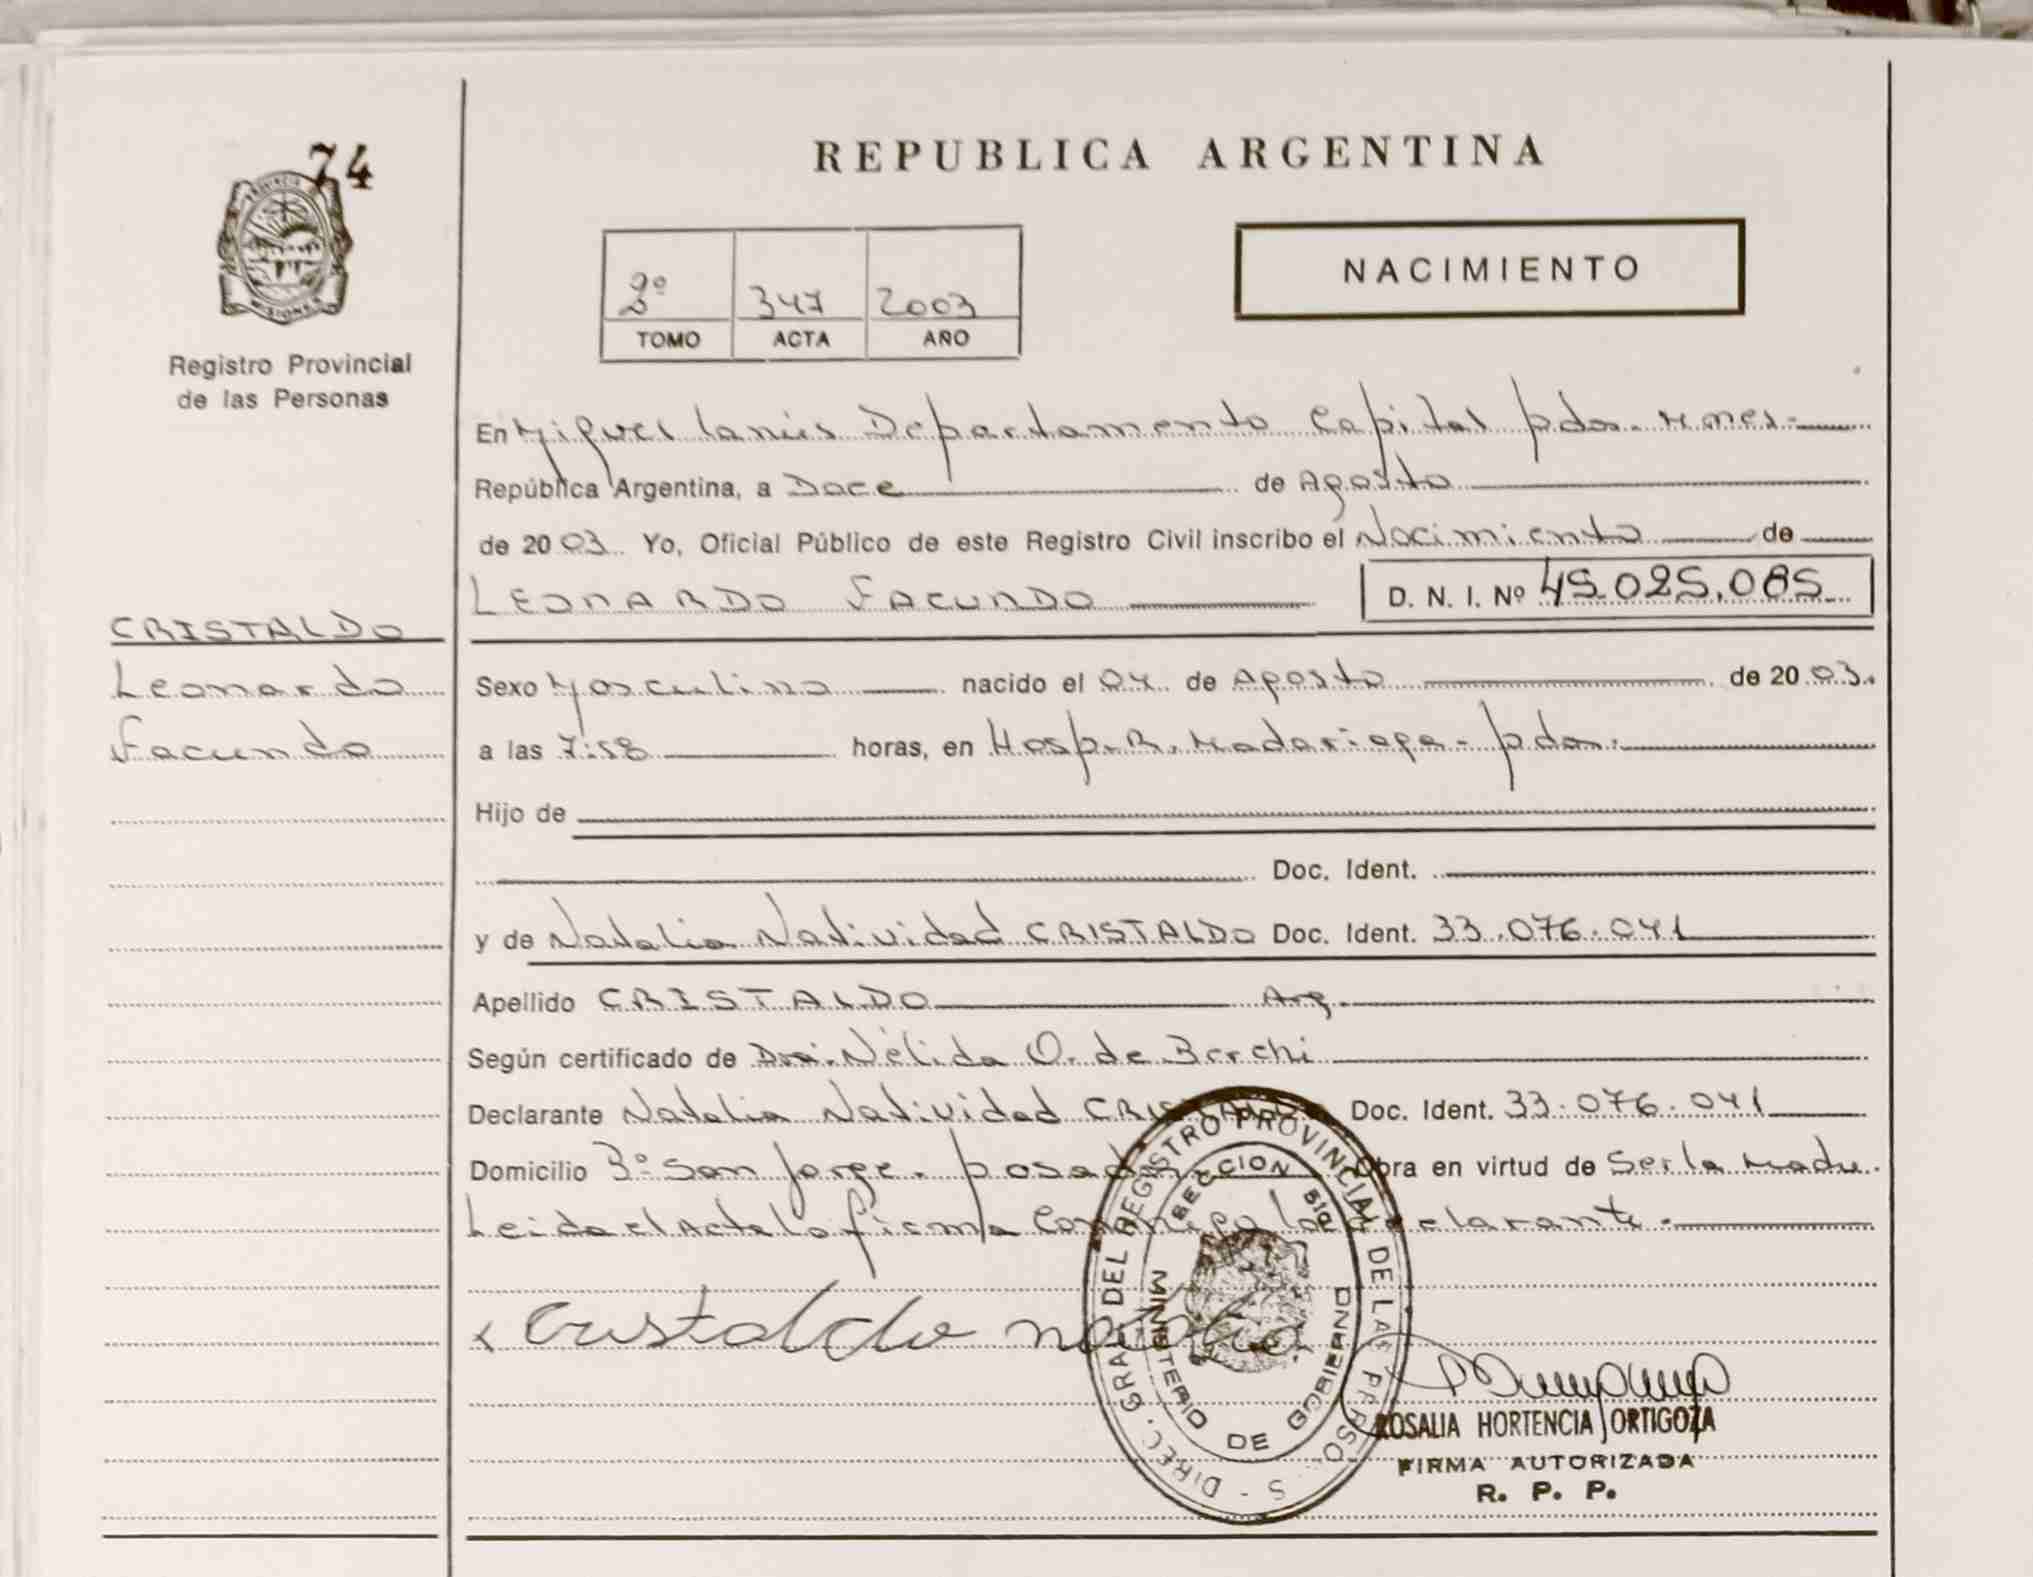 74
REPUBLICA ARGENTINA
NACIMIENTO
2º 347 2003
TOMO ACTA AÑO
Registro Provincial
de las Personas
En Miguel Lanús Departamento Capital pdas. Mnes.
República Argentina, a Doce de Agosto
de 2003 Yo, Oficial Público de este Registro Civil inscribo el Nacimiento de
LEONARDO FACUNDO D. N. I. Nº 45.025.085
CRISTALDO
Leonardo
Facundo
Sexo Masculino nacido el 04 de Agosto de 2003.
a las 7:58 horas, en Hosp. R. Madariaga - pdas.
Hijo de
Doc. Ident.
y de Natalia Natividad CRISTALDO Doc. Ident. 33.076.041
Apellido CRISTALDO Arg.
Según certificado de Dra. Nélida O. de Berchi
Declarante Natalia Natividad CRISTALDO Doc. Ident. 33.076.041
Domicilio Bº San Jorge. posadas Obra en virtud de Ser la Madre.
Leida el Acta la firma Conmigo la declarante.
x Cristaldo natalia
DIREC. GRAL. DEL REGISTRO PROVINCIAL DE LAS PERSO S
SECCION
MINISTERIO DE GOBIERNO
ROSALIA HORTENCIA ORTIGOZA
FIRMA AUTORIZADA
R. P. P.